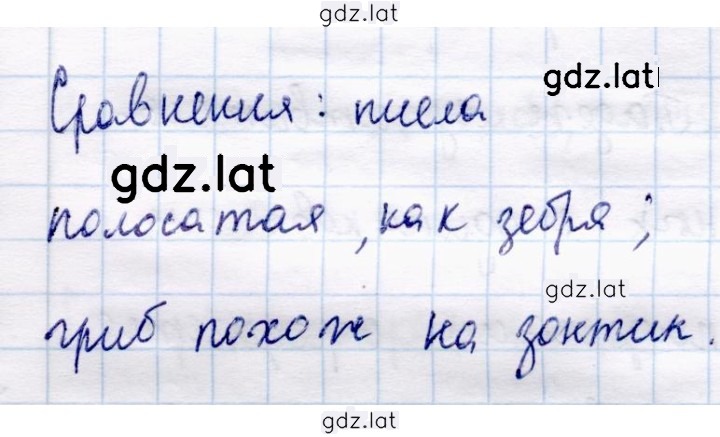 gdz.lat
gdz.lat
Сравнения: пчела
gdz.lat
полосатая, как зебра;
gdz.lat
гриб похож на зонтик.
gdz.lat